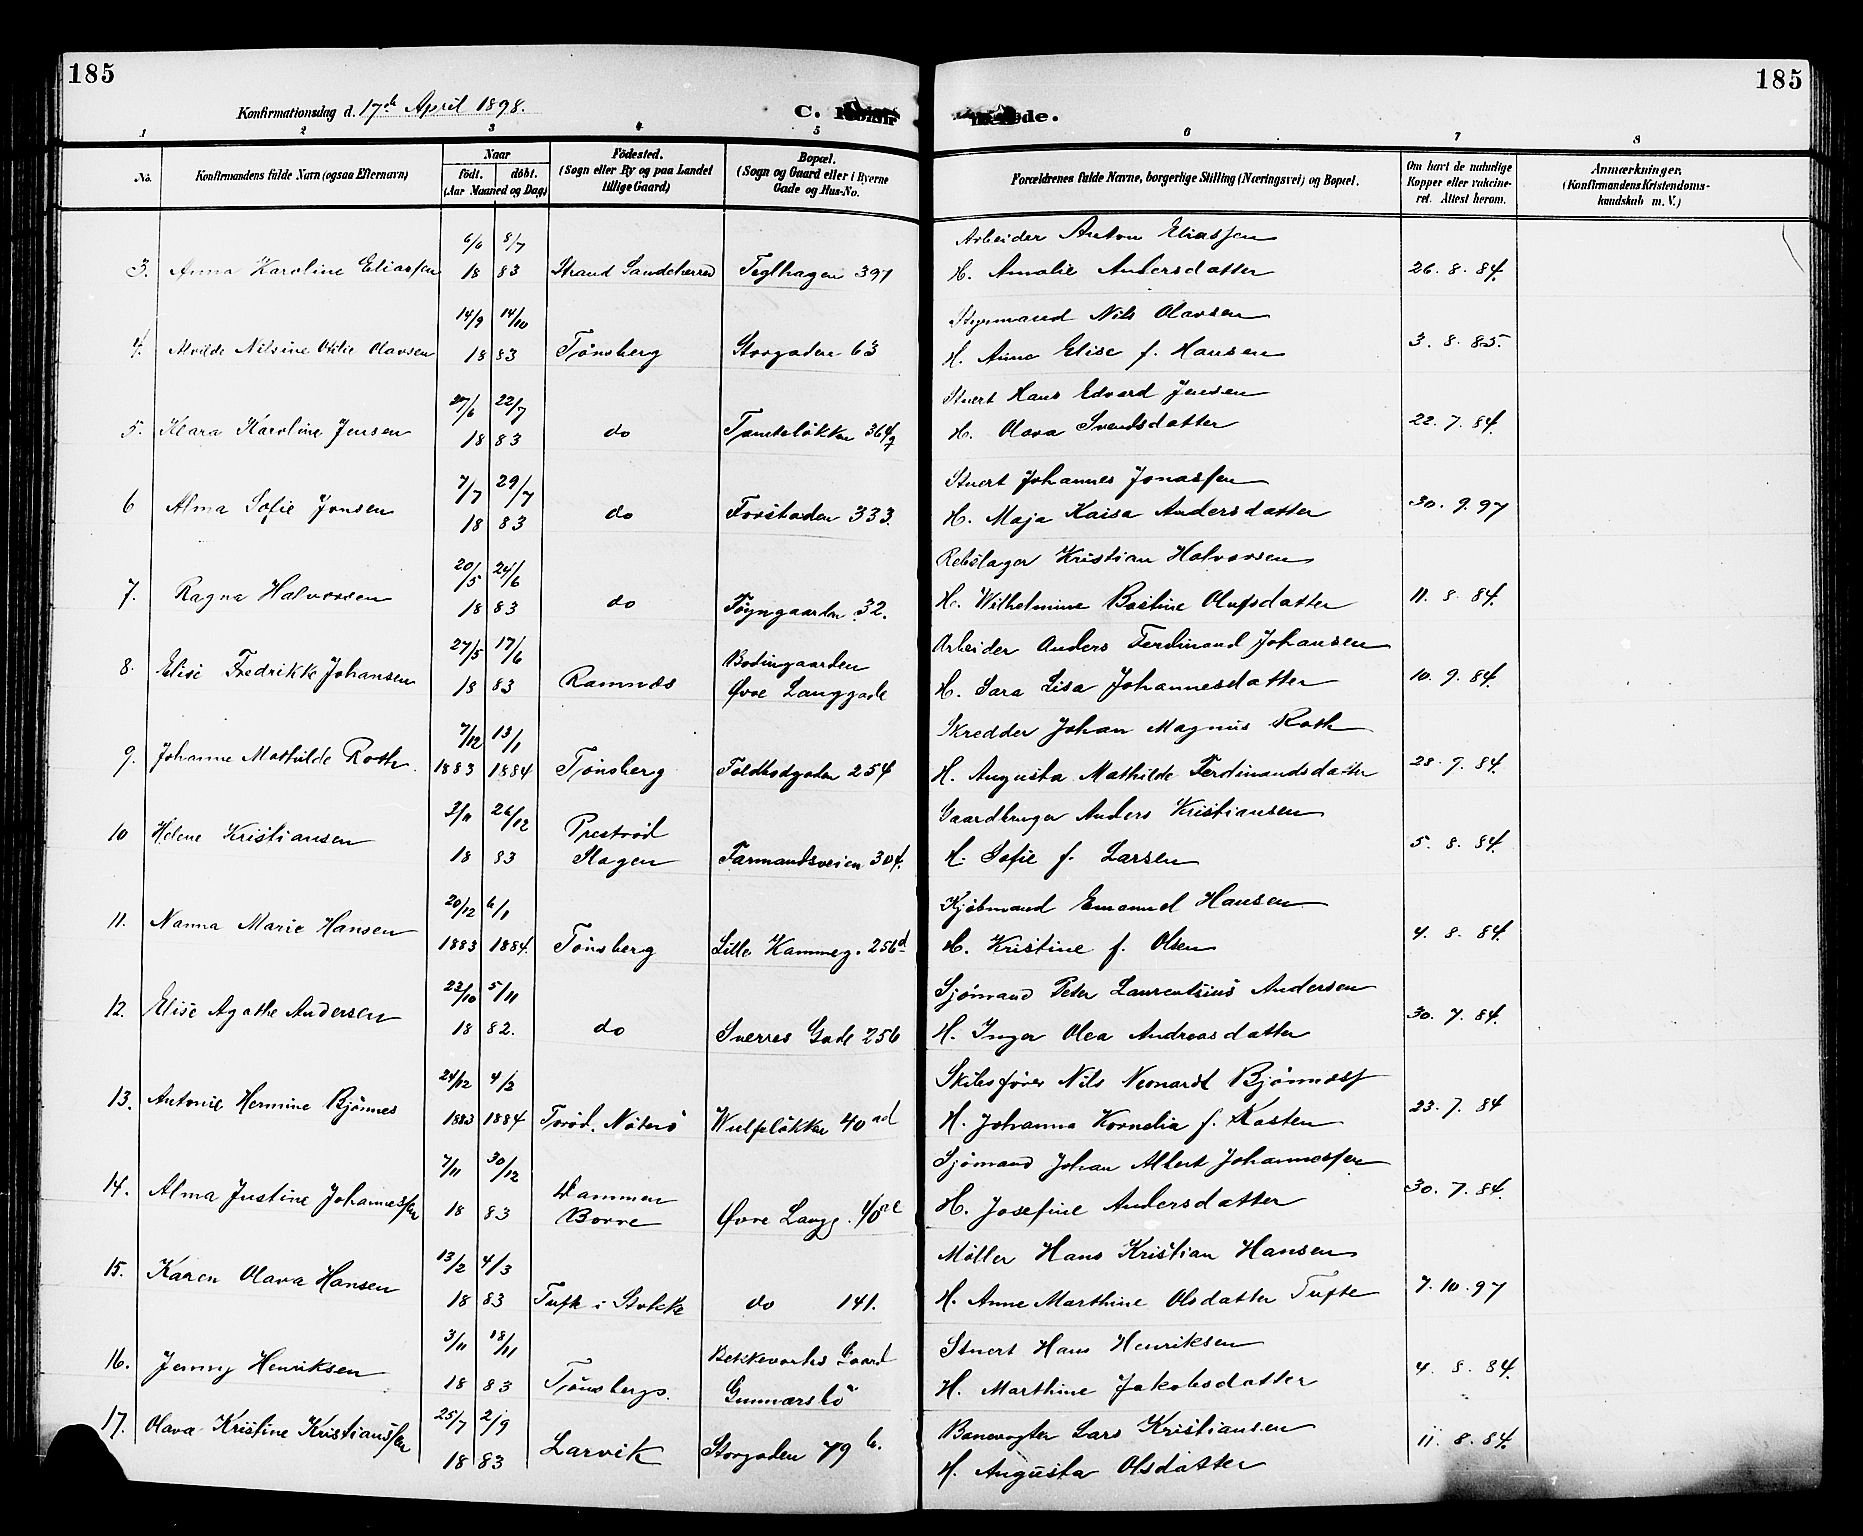 185
185
Konfirmationsdag d. 17de April 1898.
C. Konfir
rede.
1 2 3 4 5 6 7 8
No.
Konfirmandens fulde Navn (ogsaa Efternavn)
Naar
født. døbt.
(Aar Maaned og Dag)
Fødested.
(Sogn eller By og paa Landet
tillige Gaard)
Bopæl.
(Sogn og Gaard eller i Byerne
Gade og Hus-No.
Forældrenes fulde Navne, borgerlige Stilling (Næringsvei) og Bopæl.
Om havt de naturlige
Kopper eller vakcine-
ret. Attest herom.
Anmærkninger.
(Konfirmandens Kristendoms-
kundskab m. V.)
6/6 8/7 Arbeider Anton Eliassen
3. Anna Karoline Eliassen 18 83 Strand Sandeherred Teglhagen 397 H. Amalie Andersdatter 26. 8. 84.
14/9 14/10 Styrmand Nils Olavsen
4. Nilsine Otilie Olavsen 18 83 Tønsberg Storgaden 63 H. Anne Elise f. Hansen 3. 8. 85.
27/6 22/7 Stuert Hans Edvard Jensen
5. Klara Karoline Jensen 18 83 do 364 H. Olava Svendsdatter 22. 7. 84.
7/7 29/7 Stuert Johannes Jonassen
6 Alma Sofie Jonsen 18 83 do Forstaden 333. H. Maja Kaisa Andersdatter 30. 9. 97
20/5 24/6 Rebslager Kristian Halvorsen
7. Ragna Halvorsen 18 83 do Føyngaarden 32. H. Wilhelmine Bastine Olufsdatter 11. 8. 84.
27/5 17/6 Bodingaarden Arbeider Anders Ferdinand Johansen
8. Elise Fredrikke Johansen 18 83 Ramnæs Øvre Langgade H. Sara Lisa Johannesdatter 10. 9. 84.
7/12 13/1 Skredder Johan Magnus Roth
9. Johanne Mathilde Roth 1883 1884 Tjønsberg Toldbodgaden 254 H. Augusta Mathilde Ferdinandsdatter 28. 9. 84.
3/11 26/12 Prestrød Gaardbruger Anders Kristiansen
10 Helene Kristiansen 18 83 Slagen Farmandsveien 304. H. Sofie f. Larsen 5. 8. 84.
20/12 6/1 Kjøbmand Emanuel Hansen
11. Nanna Marie Hansen 1883 1884. Tønsberg Lille Kammeg. 256d H. Kristine f. Olsen 4. 8. 84.
23/10 5/11 Sjømand Peter Laurentsius Andersen
12. Elise Agathe Andersen 18 82. do Sverres Gade 256 H. Inger Olea Andreasdatter 30. 7. 84.
24/12 4/2 Skibsfører Nils Bjønness
13. Antonie Hermine Bjønnes 1883 1884 Torød, Nøterø Wulfsløkken 40ad H. Johanna Kornelia f. Kasten 23. 7. 84
7/11 30/12 Sjømand Johan Albert Johannessen
14. Alma Justine Johannessen 18 83 Dammen Borre Øvre Langg. 40 H. Josefine Andersdatter 30. 7. 84.
13/2 4/3 Møller Hans Kristian Hansen
15. Karen Olava Hansen 18 83 Tufte i Stokke do 141. H. Anne Marthine Olsdatter Tufte 7. 10. 97
3/11 18/11 Bekkevarks Gaard Stuert Hans Henriksen
16. Jenny Henriksen 18 83 Tjønsberg. Gunnarsbø H. Marthine Jakobsdatter 4. 8. 84.
25/7 2/9 Banevogter Lars Kristiansen
17. Olava Kristine Kristianssen 18 83 Larvik Storgaden 79 b. H. Augusta Olsdatter 11. 8. 84.